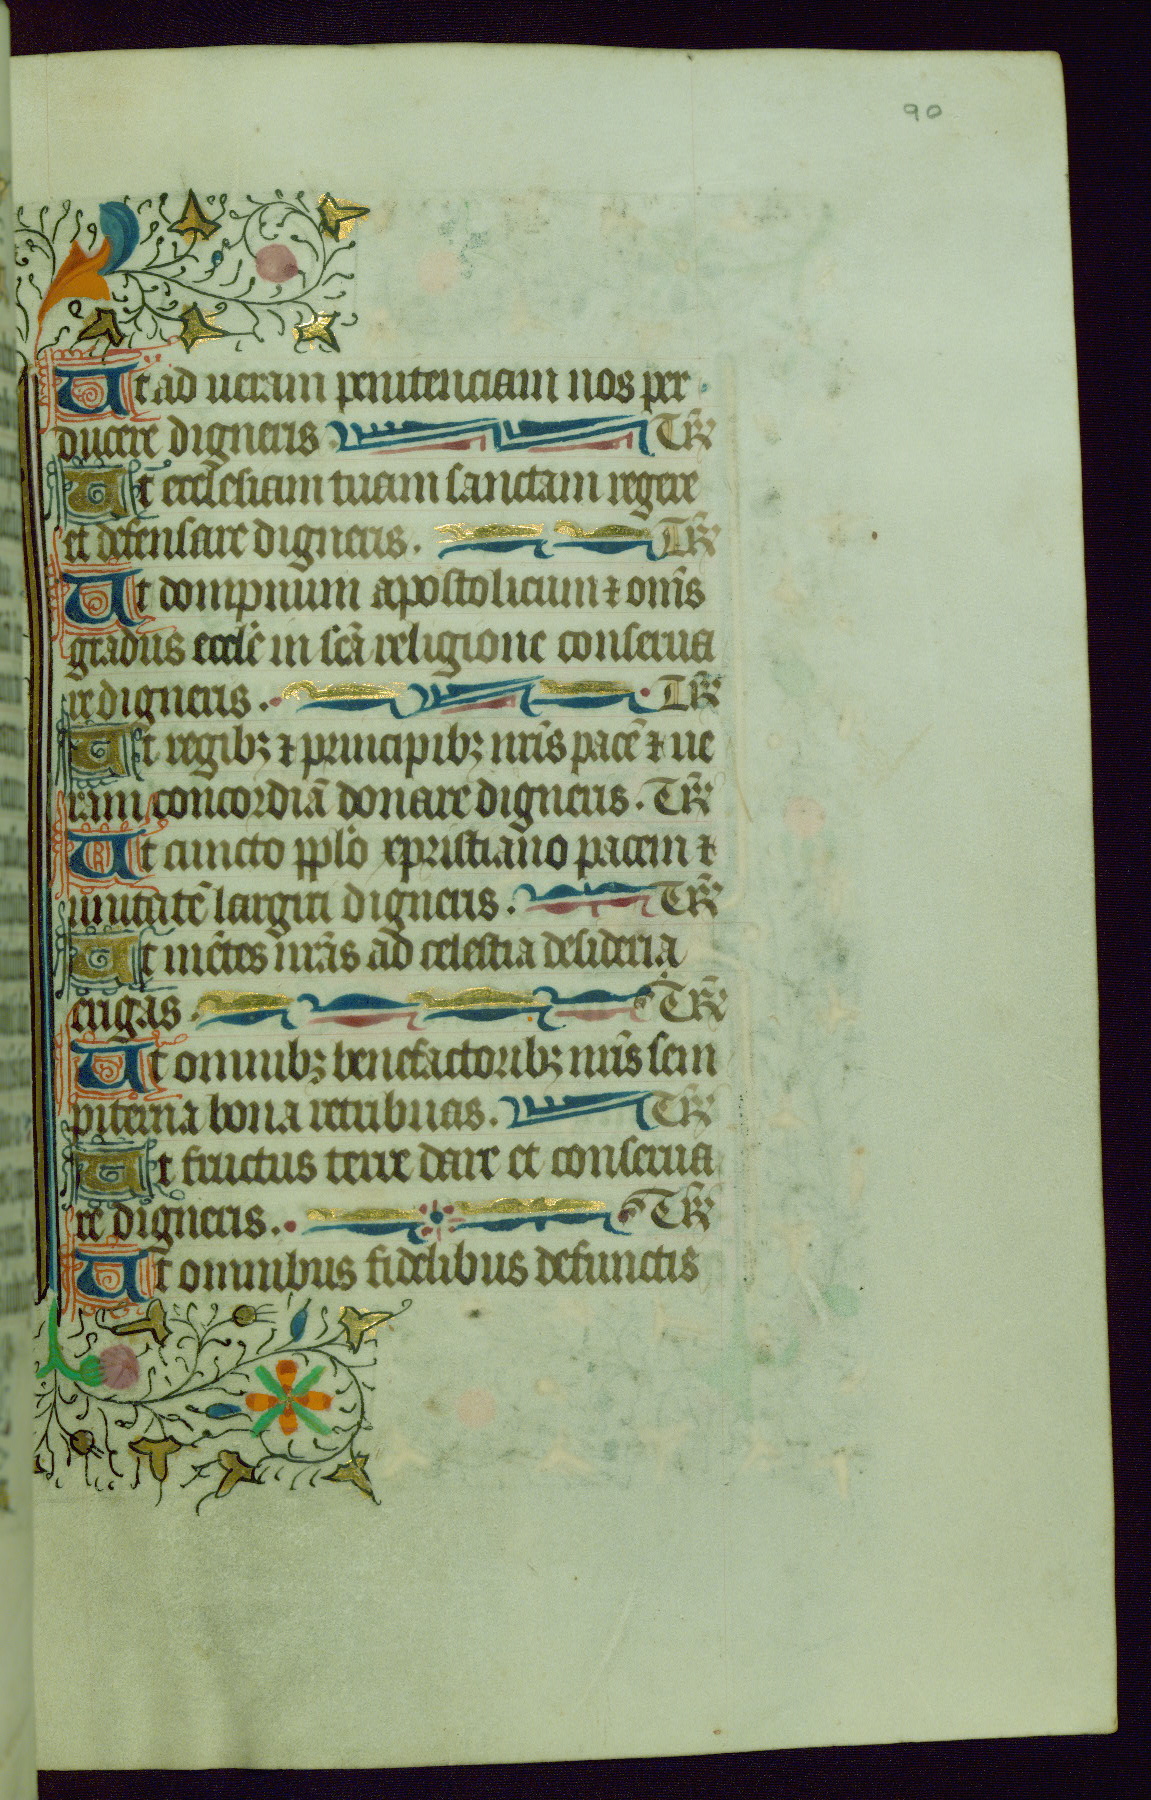 90
Ut ad ueram penitenciam nos per
ducere digneris Tꝶ
Ut ecclesiam tuam sanctam regere
et defensare digneris. Tꝶ
Ut dompnum apostolicum ⁊ om̄s
gradus eccle᷒ in sc̄a religione conserua
re digneris. Tꝶ
Ut regibꝫ ⁊ principibꝫ nr̄is pacē ⁊ ue
ram concordiā donare digneris. Tꝶ
Ut cuncto pplo᷒ xpristiano pacem ⁊
unitatē largiri digneris. Tꝶ
Ut mētes nr̄as ad celestia desideria
erigas. Tꝶ
Ut omnibꝫ benefactoribꝫ nr̄is sem
piterna bona retribuas. Tꝶ
Ut fructus terre dare et conserua
re digneris. Tꝶ
Ut omnibus fidelibus defunctis